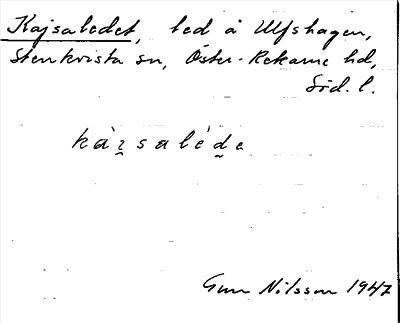 Kajsaledet, led å Ulfshagen,
Stenkvista sn, Öster-Rekarne hd,
Söd. l.
kàɪ̯salède̯
Gun Nilsson 1947